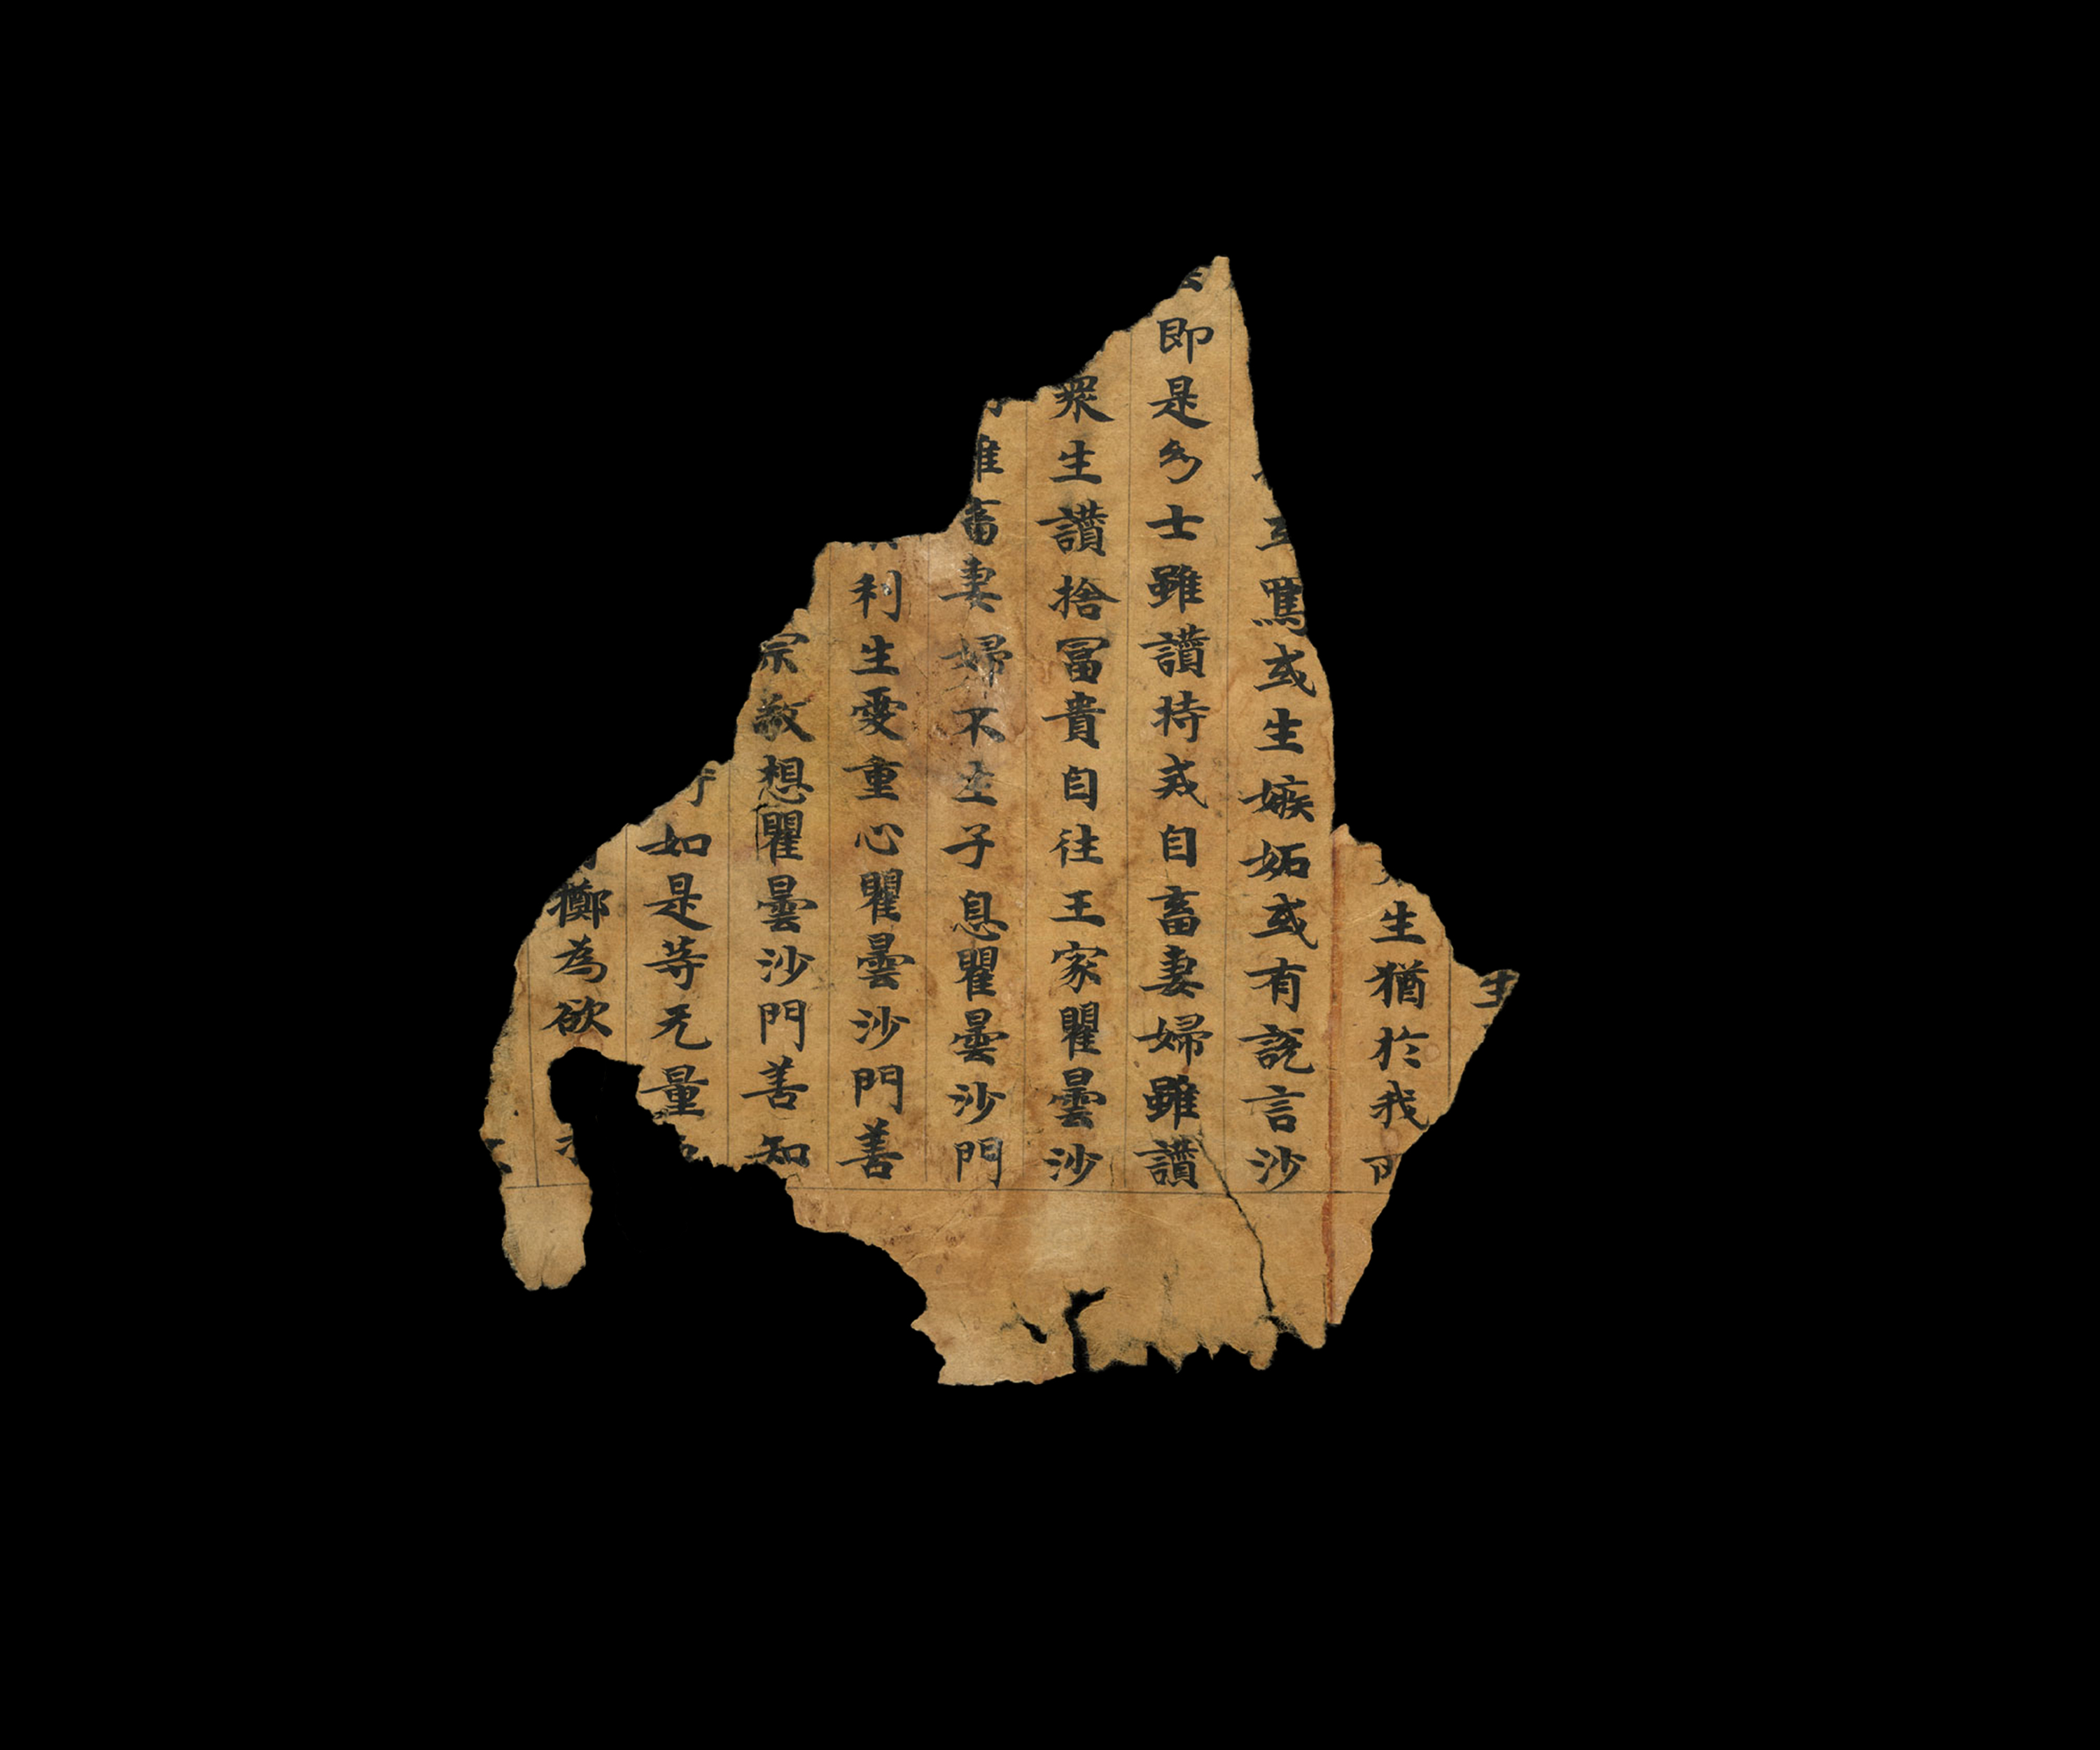 生猶於我
罵或生嫉妬或有說言沙
即是幻士雖讃持戒自畜妻婦雖讃
眾生讃捨冨貴自往王家瞿曇沙
畜妻婦不立子息瞿曇沙門
利生愛重心瞿曇沙門善
宗敬想瞿曇沙門善知
如是等无量
擲為欲